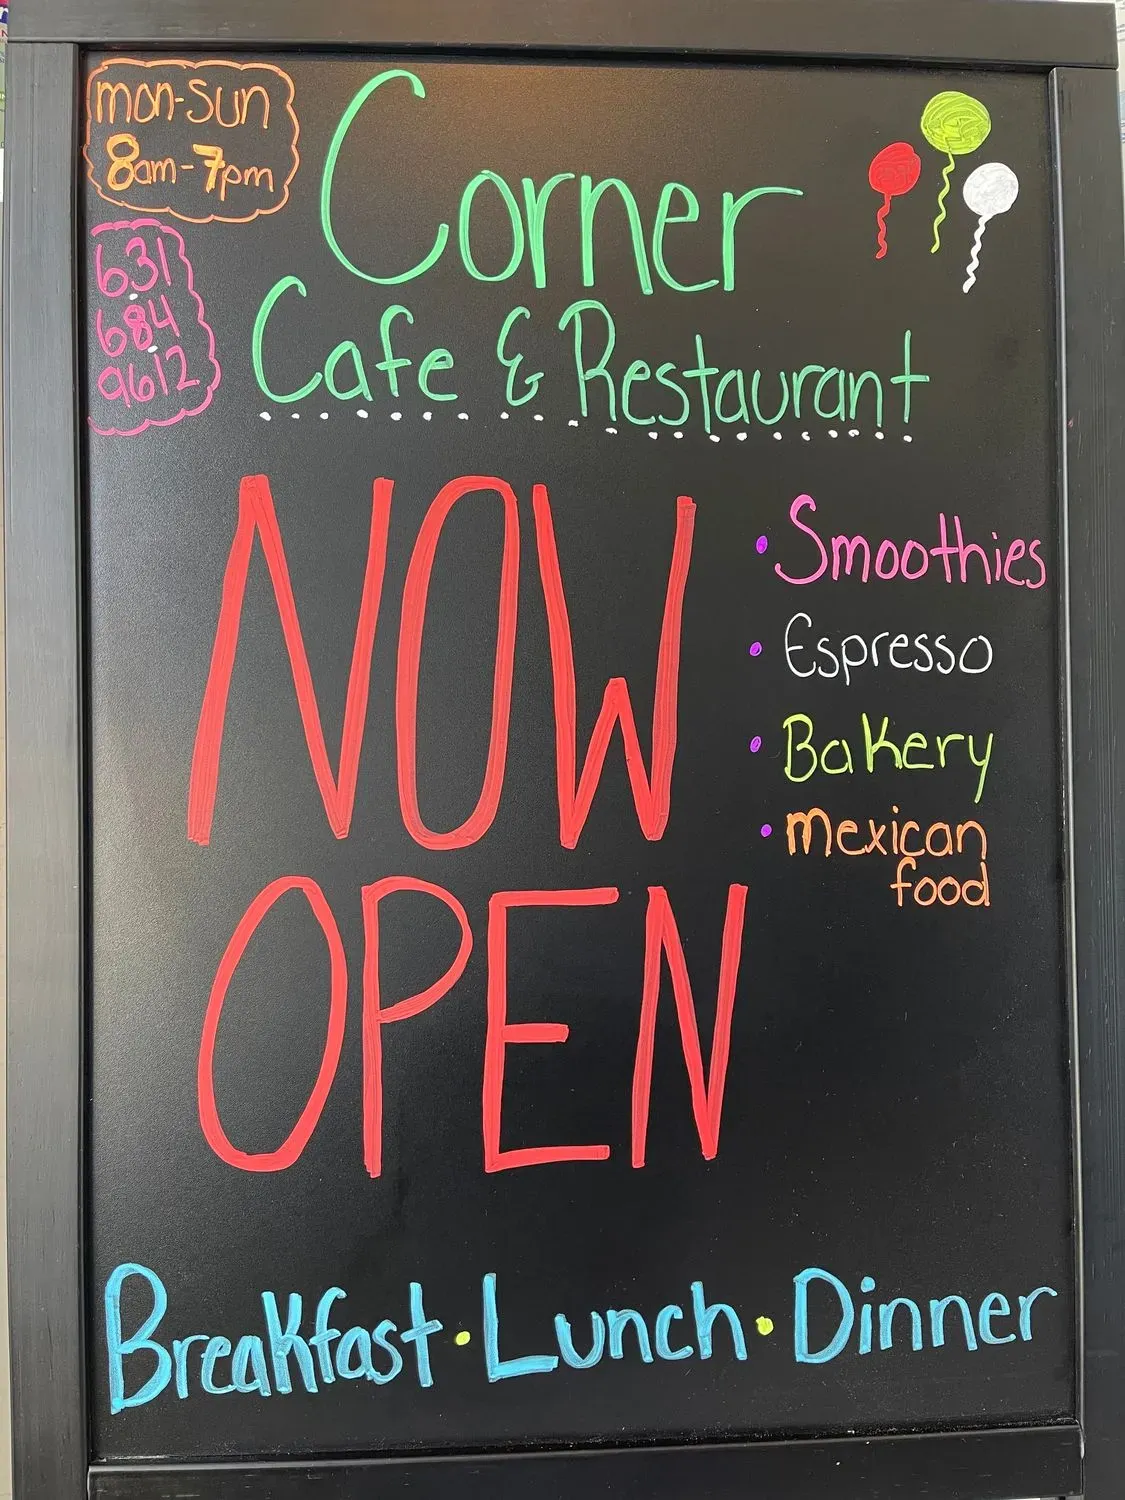 mon-sun
8am-7pm
631
684
9612
Corner
Cafe & Restaurant
NOW
OPEN
• Smoothies
• Espresso
• Bakery
• mexican
food
Breakfast • Lunch • Dinner